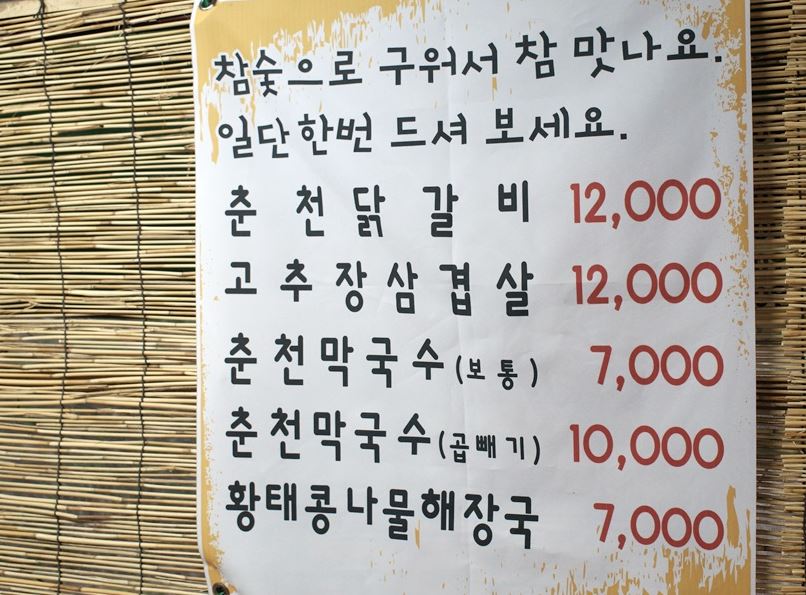 참숯으로 구워서 참 맛나요.
일단한번 드셔 보세요.
춘천닭갈비 12,000
고추장삼겹살 12,000
춘천막국수(보통) 7,000
춘천막국수(곱빼기) 10,000
황태콩나물해장국 7,000